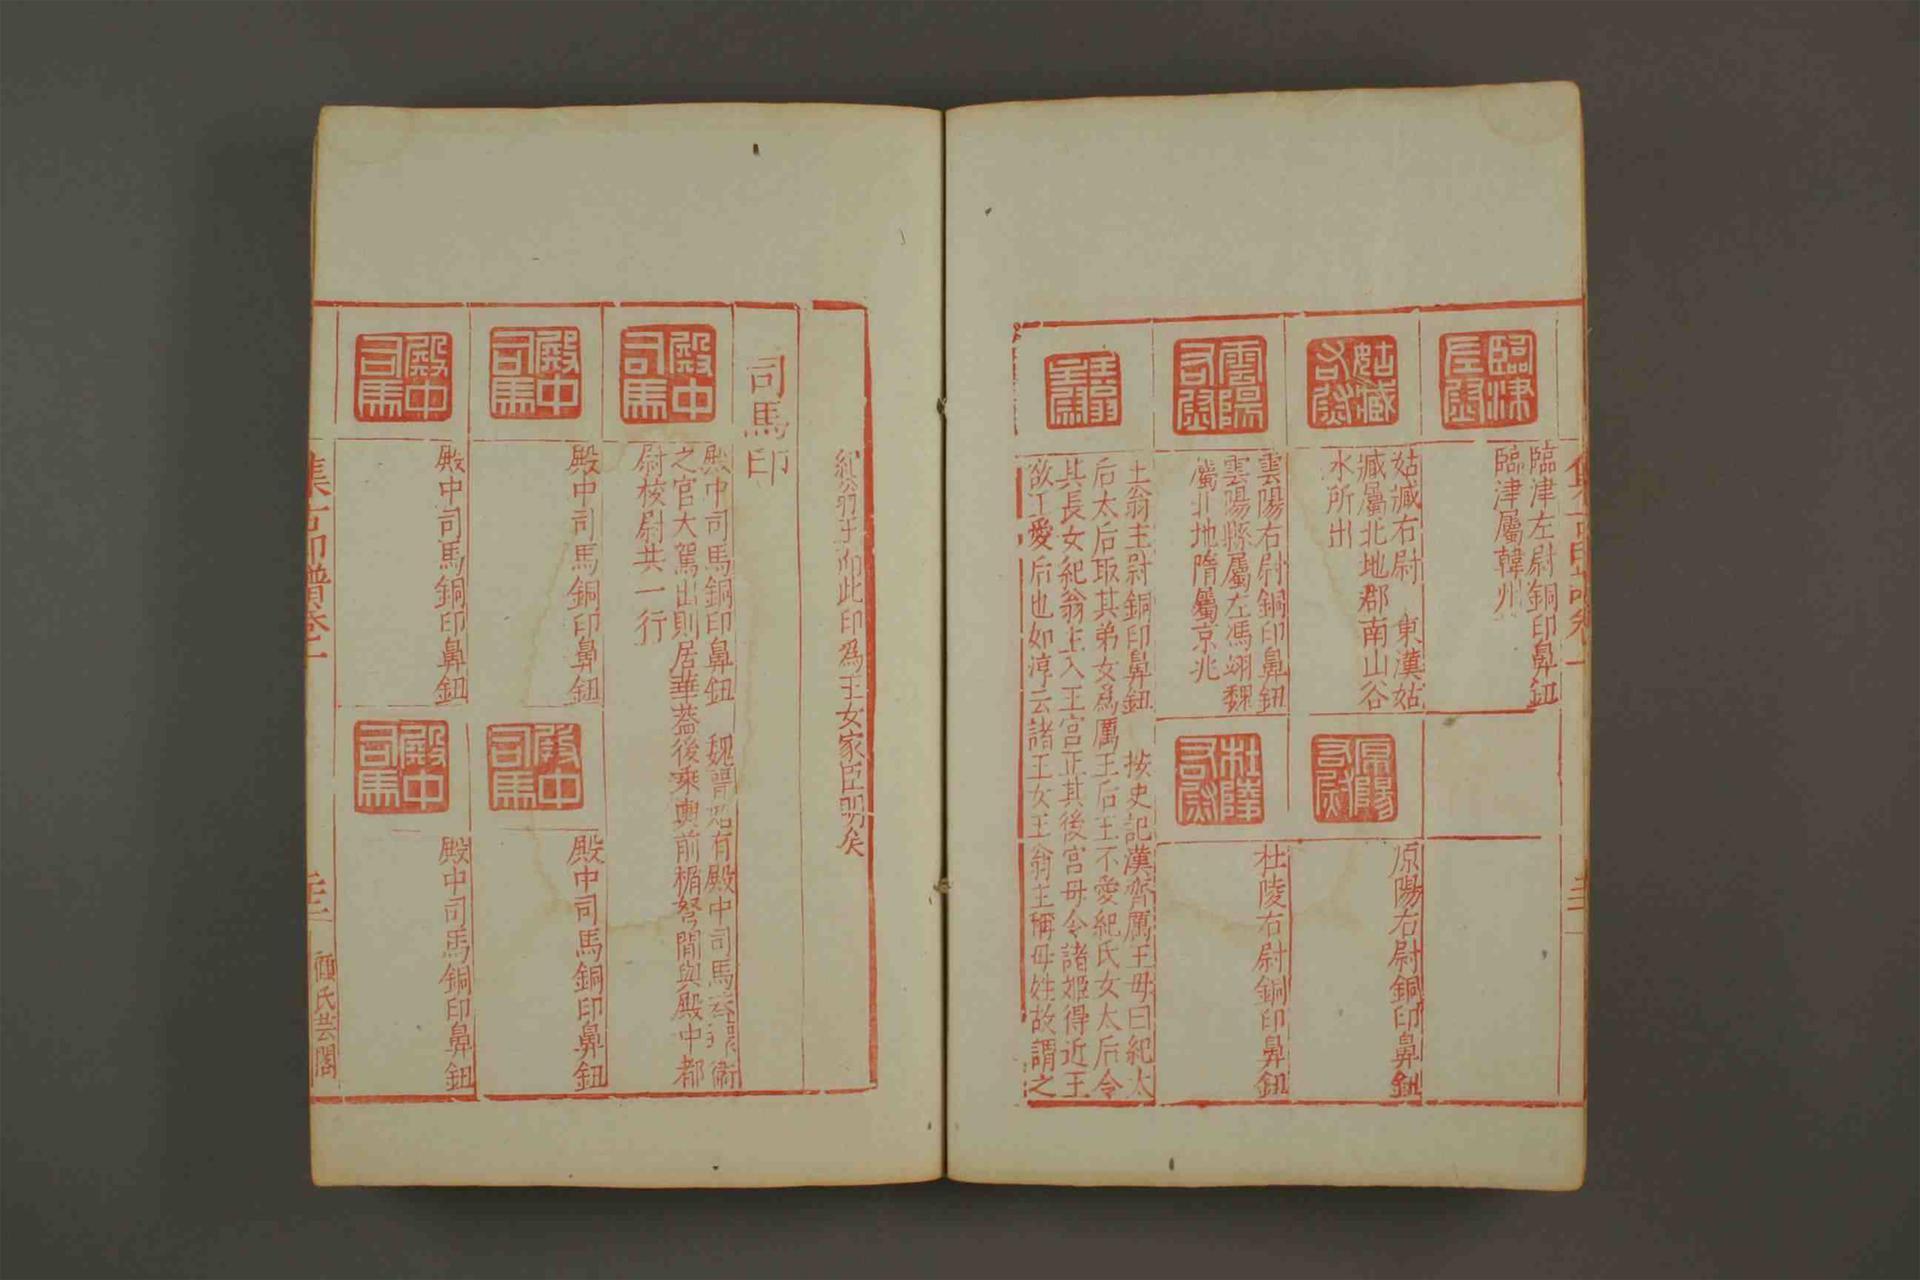 臨津左尉
臨津左尉銅印鼻鈕
臨津屬韓州
姑臧右尉
姑臧右尉 東漢姑
臧屬北地郡南山谷
水所出
原陽右尉
原陽右尉銅印鼻鈕
雲陽右尉
雲陽右尉銅印鼻鈕
雲陽縣屬左馮翊魏
屬北地隋屬京兆
杜陵右尉
杜陵右尉銅印鼻鈕
王翁主尉
王翁主尉銅印鼻鈕 按史記漢齊厲王母曰紀太
后太后取其弟女為厲王后王不愛紀氏女太后令
其長女紀翁主入王宮正其後宮毋令諸姬得近王
欲王愛后也如淳云諸王女王翁主稱母姓故謂之
紀翁主而此印為王女家臣明矣
司馬印
殿中司馬
殿中司馬銅印鼻鈕 魏晉始有殿中司馬 衛
之官大駕出則居華蓋後乘輿前楯弩間與殿中都
尉校尉共一行
殿中司馬
殿中司馬銅印鼻鈕
殿中司馬
殿中司馬銅印鼻鈕
殿中司馬
殿中司馬銅印鼻鈕
殿中司馬
殿中司馬銅印鼻鈕
集古印譜卷一
顧氏芸閣